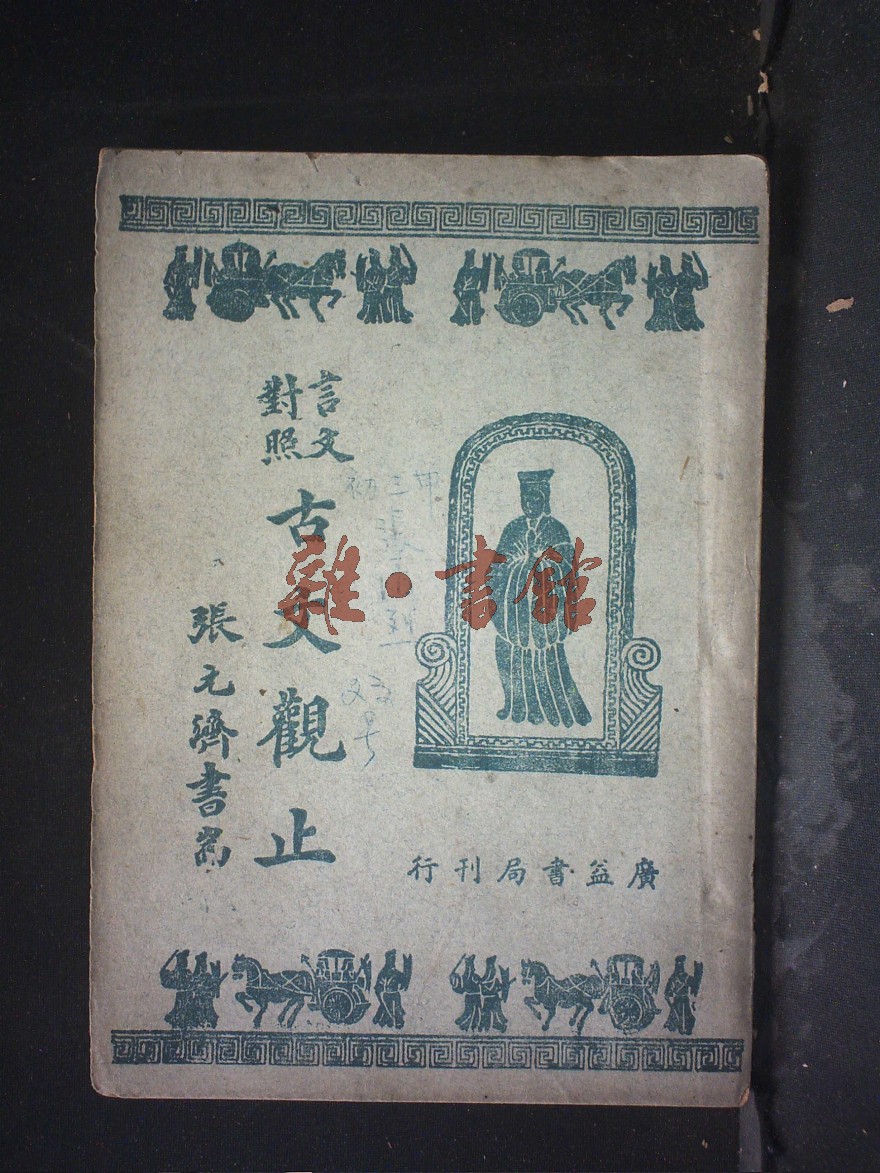 言文
對照
古文觀止
張元濟書耑
廣益書局刊行
初三甲
雜·書館